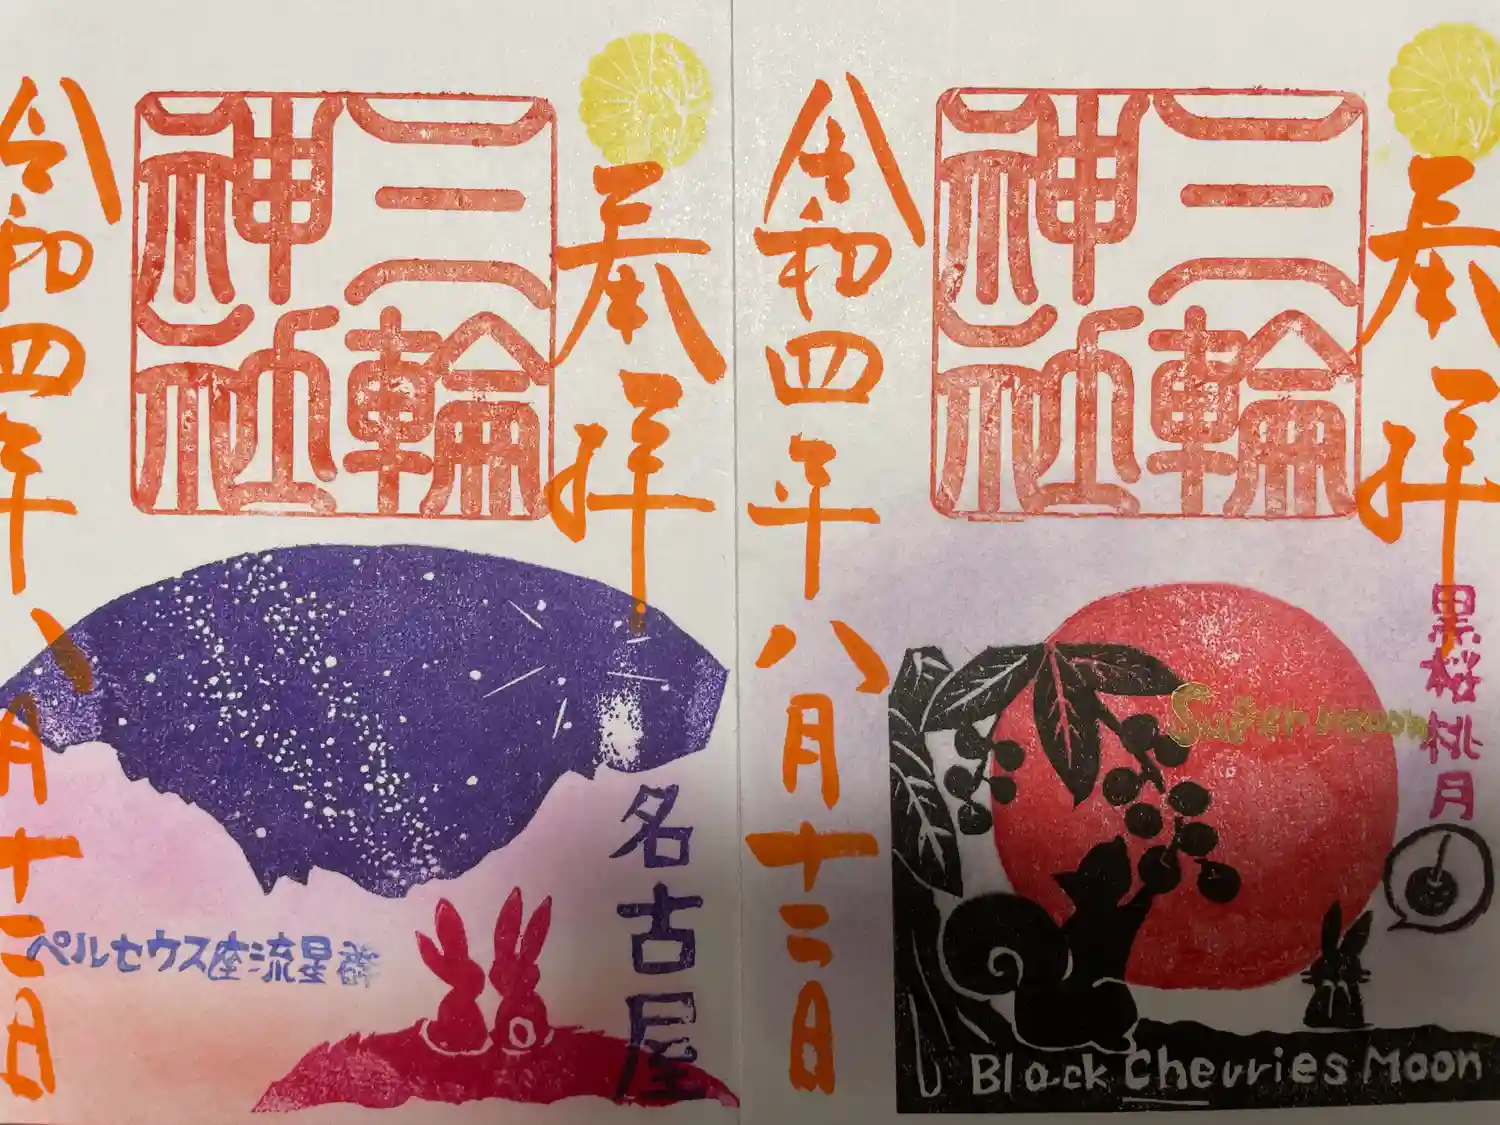 奉拝
三輪
神社
令和四年八月十二日
名古屋
ペルセウス座流星群
奉拝
三輪
神社
令和四年八月十二日
黒桜桃月
Super moon
Black Cherries Moon